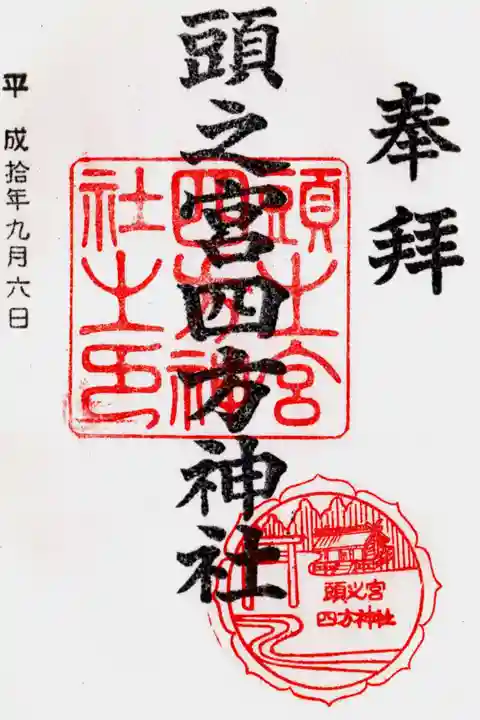 奉拝
頭之宮四方神社
平成拾年九月六日
頭之宮
四方神
社之印
頭之宮
四方神社